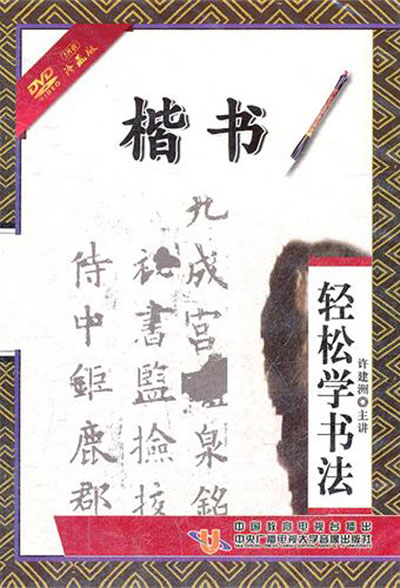 DVD
珍藏版
楷书
九成宫醴泉銘
秘書監撿挍
侍中鉅鹿郡
轻松学书法
许建洲◎主讲
中国教育电视台播出
中央广播电视大学音像出版社